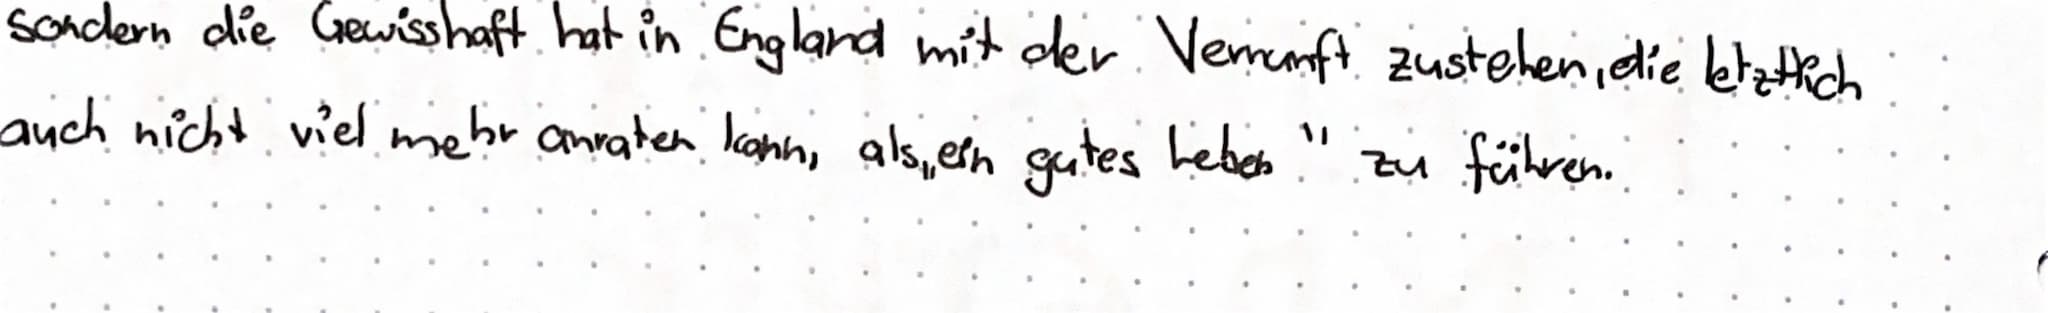 sondern die Gewisshaft hat in England mit der Vernunft zustehen, die letztlich
auch nicht viel mehr anraten kann, als „ein gutes Leben" zu führen.